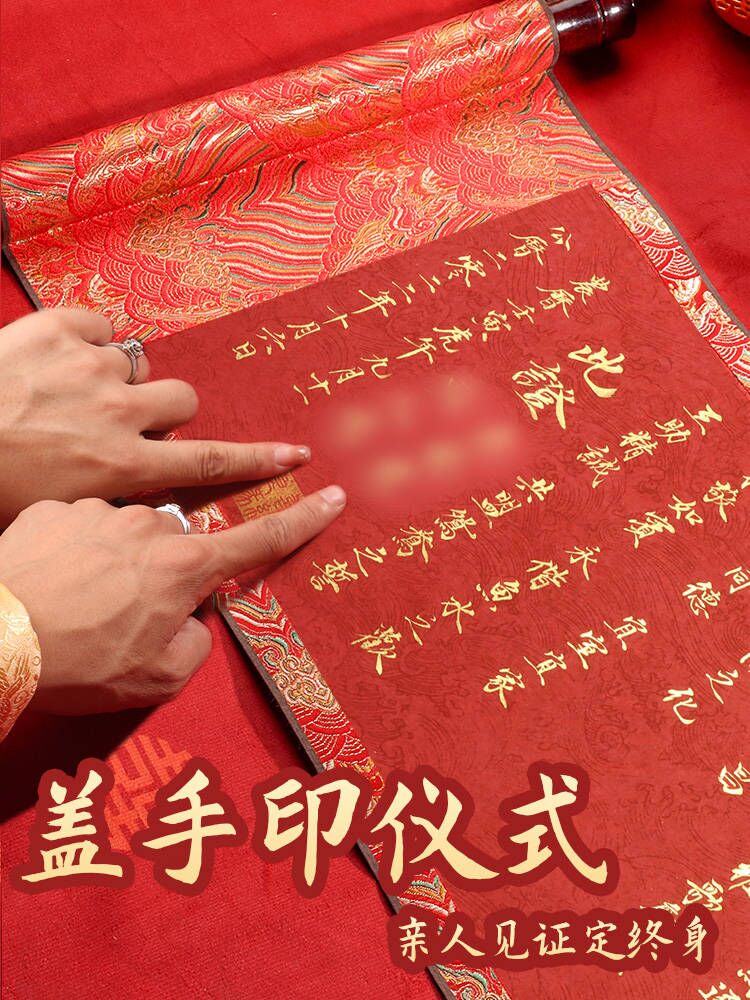 昌
之化
同德 宜室宜家
敬如賓 永偕魚水之歡
互助精誠 共盟鴛鴦之誓
此證
農曆壬寅虎年九月十一
公曆二零二二年十月六日
盖手印仪式
亲人见证定终身